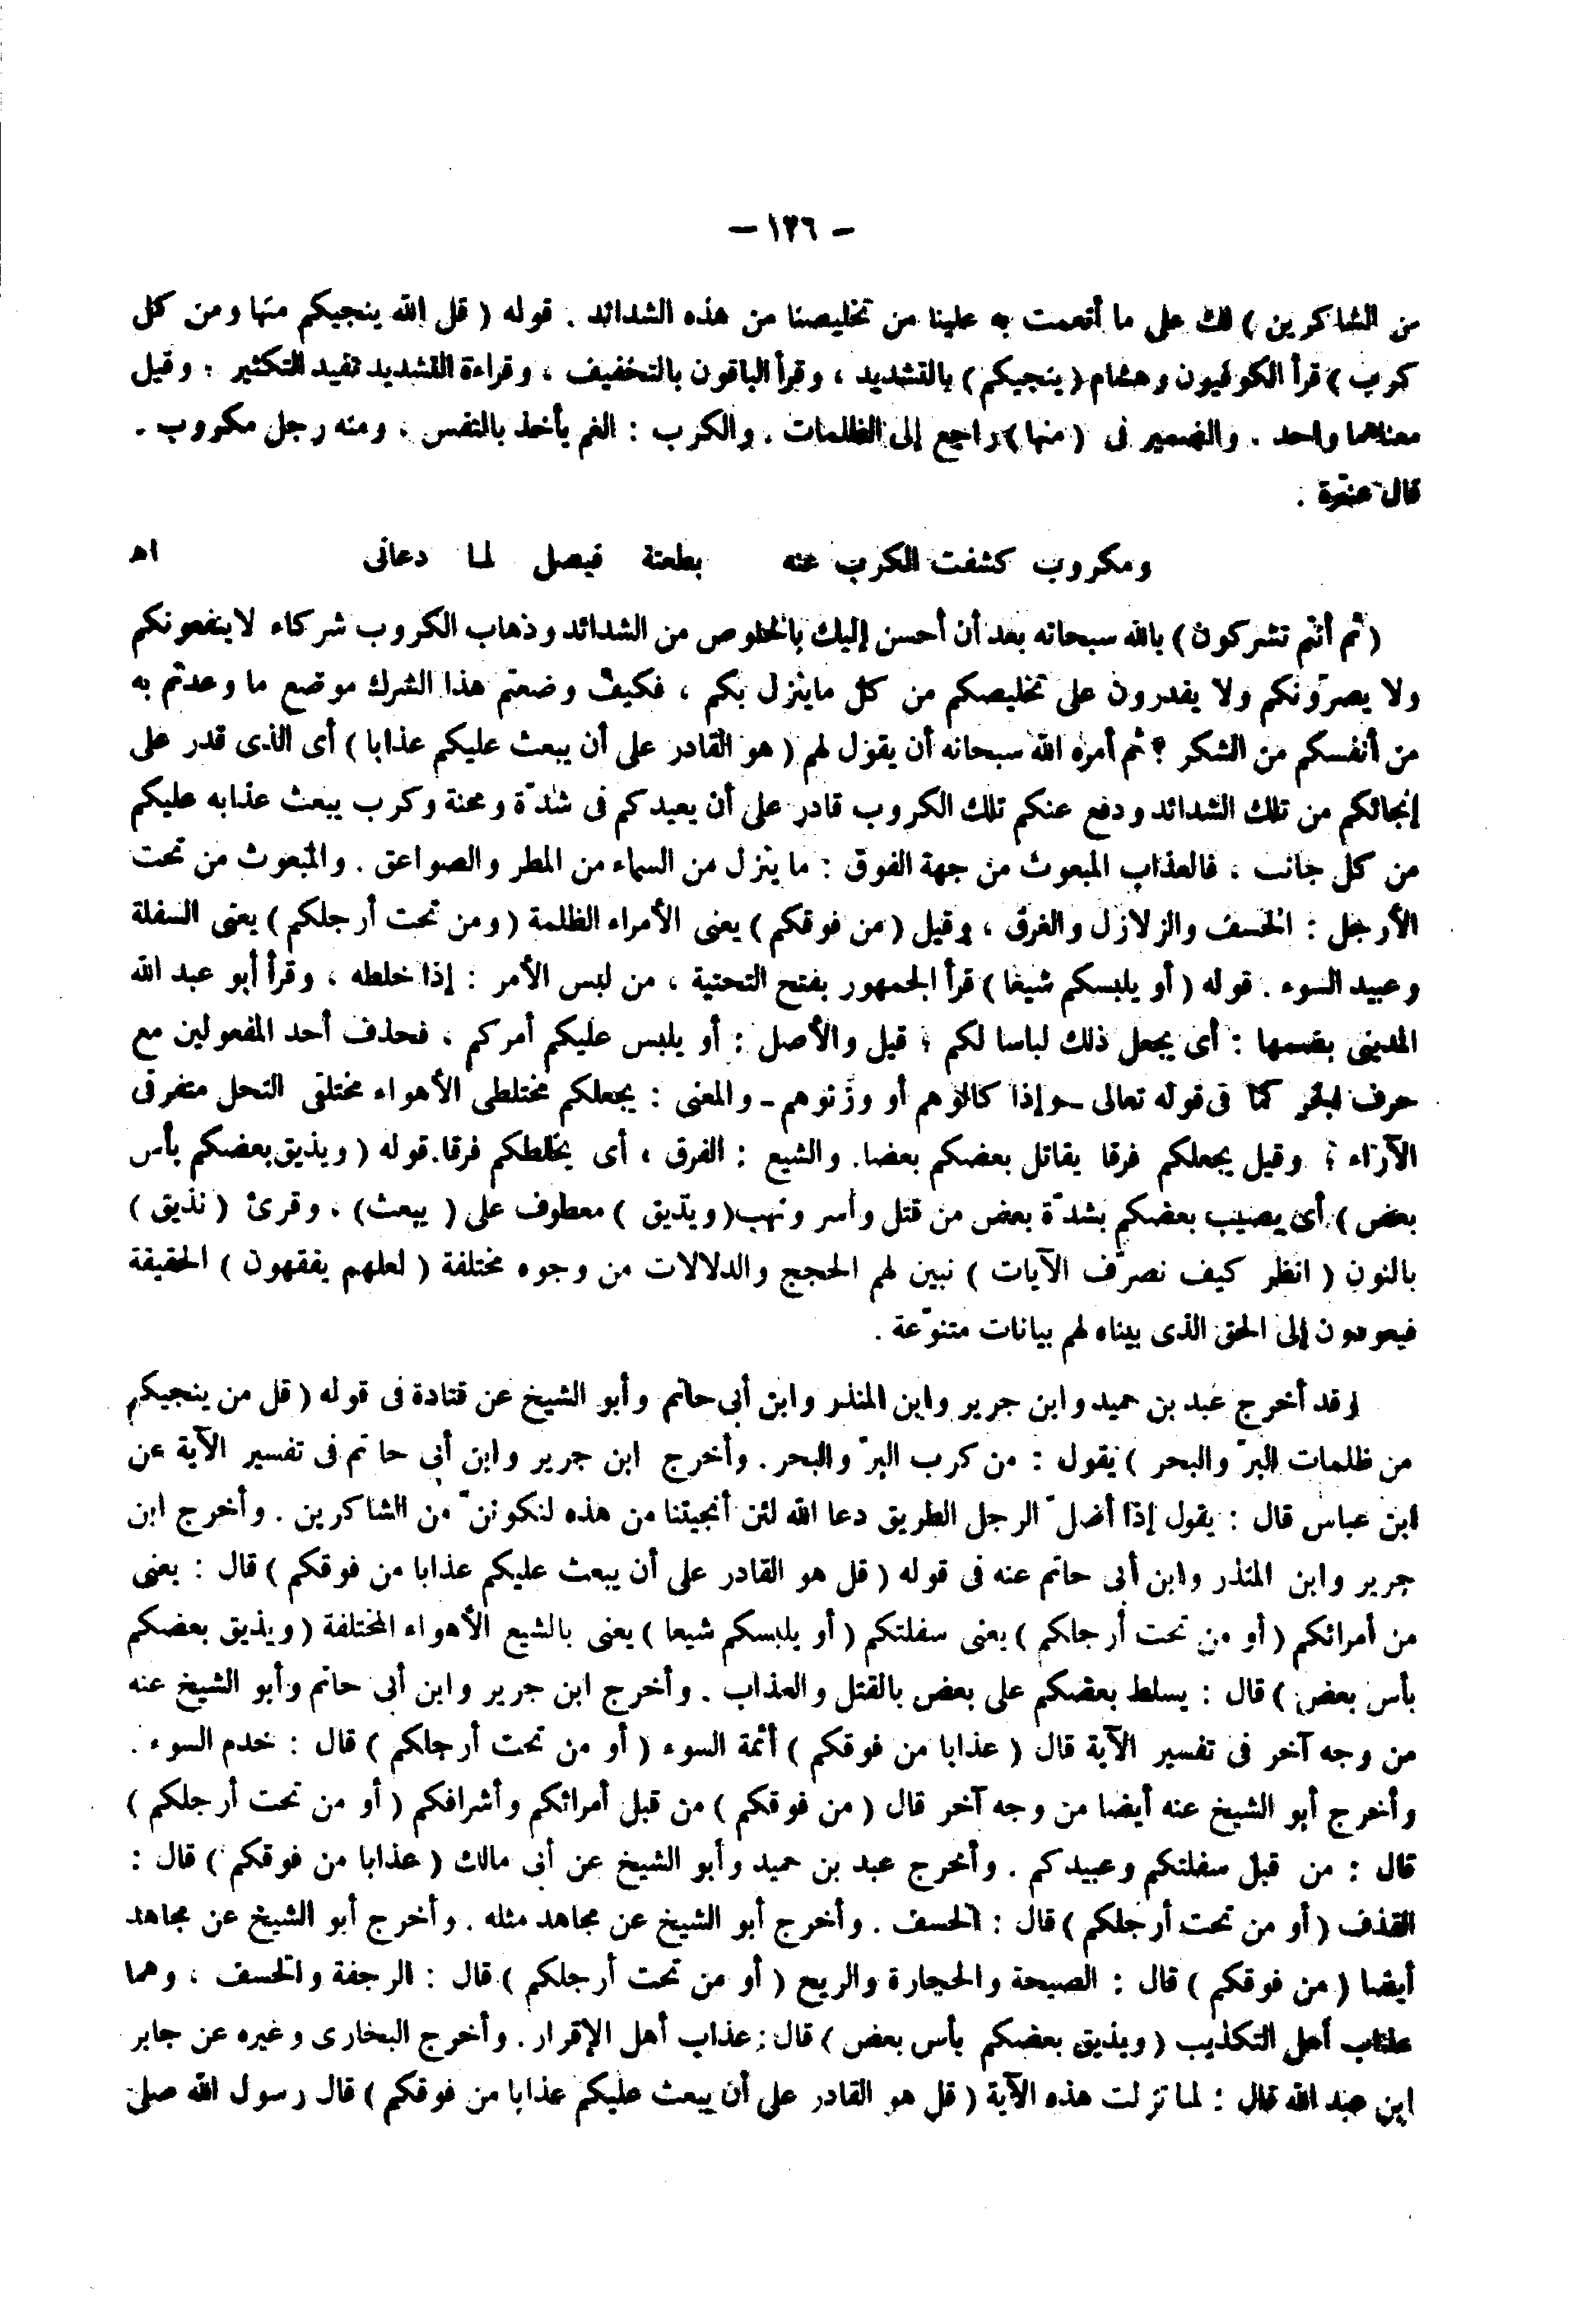 — ١٢٦ —
من الشاكرين ) لك على ما أنعمت به علينا من تخليصنا من هذه الشدائد . قوله ( قل الله ينجيكم منها ومن كل
كرب ) قرأ الكوفيون وهشام ( ينجيكم ) بالتشديد ، وقرأ الباقون بالتخفيف ، وقراءة التشديد تفيد التكثير ؛ وقيل
معناهما واحد . والضمير فى ( منها ) راجع إلى الظلمات . والكرب : الغم يأخذ بالنفس ، ومنه رجل مكروب .
قال عنترة .
ومكروب كشفت الكرب عنه بطعنة فيصل لما دعانى اه
( ثم أنتم تشركون ) بالله سبحانه بعد أن أحسن إليك بالخلوص من الشدائد وذهاب الكروب شركاء لا ينفعونكم
ولا يضرّونكم ولا يقدرون على تخليصكم من كل ماينزل بكم ، فكيف وضعتم هذا الشرك موضع ما وعدتم به
من أنفسكم من الشكر ؟ ثم أمره الله سبحانه أن يقول لهم ( هو القادر على أن يبعث عليكم عذابا ) أى الذى قدر على
إنجائكم من تلك الشدائد ودفع عنكم تلك الكروب قادر على أن يعيدكم فى شدّة ومحنة وكرب يبعث عذابه عليكم
من كل جانب ، فالعذاب المبعوث من جهة الفوق : ما ينزل من السماء من المطر والصواعق . والمبعوث من تحت
الأرجل : الخسف والزلازل والغرق ، وقيل ( من فوقكم ) يعنى الأمراء الظلمة ( ومن تحت أرجلكم ) يعنى السفلة
وعبيد السوء . قوله ( أو يلبسكم شيعا ) قرأ الجمهور بفتح التحتية ، من لبس الأمر : إذا خلطه ، وقرأ أبو عبد الله
المدينى بضمها : أى يجعل ذلك لباسا لكم ؛ قيل والأصل : أو يلبس عليكم أمركم ، فحذف أحد المفعولين مع
حرف الجر كما فى قوله تعالى ـ وإذا كالوهم أو وزنوهم ـ والمعنى : يجعلكم مختلطى الأهواء مختلفى النحل متفرقى
الآراء ؛ وقيل يجعلكم فرقا يقاتل بعضكم بعضا . والشيع : الفرق ، أى يخلطكم فرقا . قوله ( ويذيق بعضكم بأس
بعض ) أى يصيب بعضكم بشدّة بعض من قتل وأسر ونهب ( ويذيق ) معطوف على ( يبعث ) ، وقرئ ( نذيق )
بالنون ( انظر كيف نصرّف الآيات ) نبين لهم الحجج والدلالات من وجوه مختلفة ( لعلهم يفقهون ) الحقيقة
فيعودون إلى الحق الذى بيناه لهم بيانات متنوّعة .
وقد أخرج عبد بن حميد وابن جرير وابن المنذر وابن أبى حاتم وأبو الشيخ عن قتادة فى قوله ( قل من ينجيكم
من ظلمات البرّ والبحر ) يقول : من كرب البرّ والبحر . وأخرج ابن جرير وابن أبى حاتم فى تفسير الآية عن
ابن عباس قال : يقول إذا أضلّ الرجل الطريق دعا الله لئن أنجيتنا من هذه لنكوننّ من الشاكرين . وأخرج ابن
جرير وابن المنذر وابن أبى حاتم عنه فى قوله ( قل هو القادر على أن يبعث عليكم عذابا من فوقكم ) قال : يعنى
من أمرائكم ( أو من تحت أرجلكم ) يعنى سفلتكم ( أو يلبسكم شيعا ) يعنى بالشيع الأهواء المختلفة ( ويذيق بعضكم
بأس بعض ) قال : يسلط بعضكم على بعض بالقتل والعذاب . وأخرج ابن جرير وابن أبى حاتم وأبو الشيخ عنه
من وجه آخر فى تفسير الآية قال ( عذابا من فوقكم ) أئمة السوء ( أو من تحت أرجلكم ) قال : خدم السوء .
وأخرج أبو الشيخ عنه أيضا من وجه آخر قال ( من فوقكم ) من قبل أمرائكم وأشرافكم ( أو من تحت أرجلكم )
قال : من قبل سفلتكم وعبيدكم . وأخرج عبد بن حميد وأبو الشيخ عن أبى مالك ( عذابا من فوقكم ) قال :
القذف ( أو من تحت أرجلكم ) قال : الخسف . وأخرج أبو الشيخ عن مجاهد مثله . وأخرج أبو الشيخ عن مجاهد
أيضا ( من فوقكم ) قال : الصيحة والحجارة والريح ( أو من تحت أرجلكم ) قال : الرجفة والخسف ، وهما
عذاب أهل التكذيب ( ويذيق بعضكم بأس بعض ) قال : عذاب أهل الإقرار . وأخرج البخارى وغيره عن جابر
ابن عبد الله قال : لما نزلت هذه الآية ( قل هو القادر على أن يبعث عليكم عذابا من فوقكم ) قال رسول الله صلى